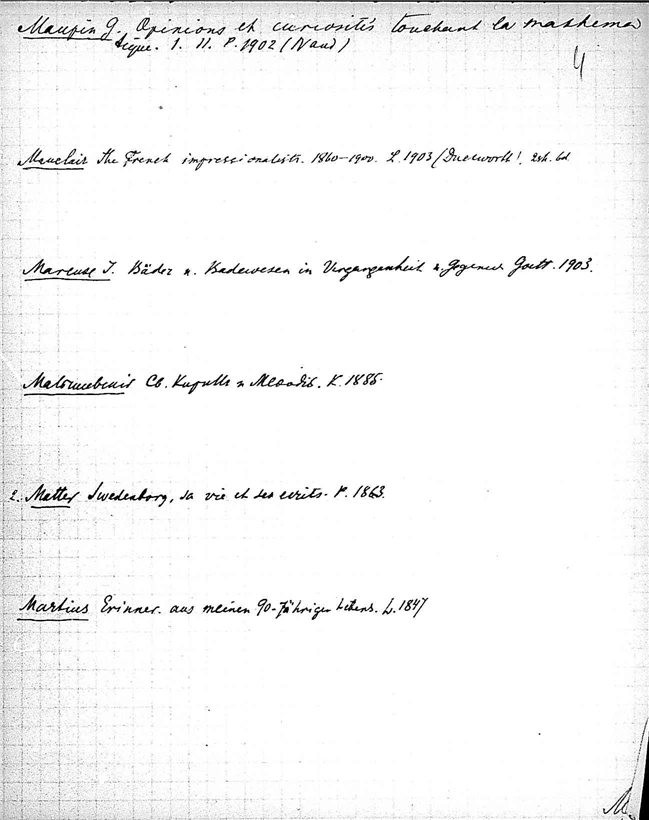 Maupin G. Opinions et curiosités touchant la mathema
tique. I. II. P. 1902 (Naud)
4
Mauclair The French impressionalists. 1860–1900. L. 1903 (Duckworth!
Marcuse J. Bäder u. Badewesen in Vergangenheit u. Gegenw. Stutt. 1903.
Св. Кирилл и Меѳодій. К. 1885.
2. Matter Swedenborg, sa vie et ses ecrits. P. 1863.
Martius Erinner. aus meinen 90-jährigen Lebens. L. 1847
M.